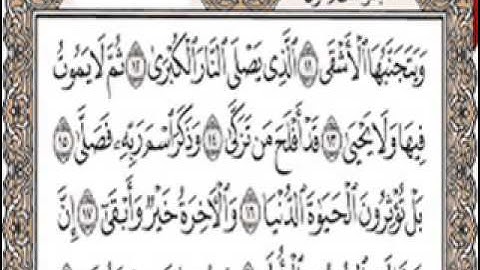 وَيَتَجَنَّبُهَا ٱلْأَشْقَى ١١ ٱلَّذِى يَصْلَى ٱلنَّارَ ٱلْكُبْرَىٰ ١٢ ثُمَّ لَا يَمُوتُ
فِيهَا وَلَا يَحْيَىٰ ١٣ قَدْ أَفْلَحَ مَن تَزَكَّىٰ ١٤ وَذَكَرَ ٱسْمَ رَبِّهِۦ فَصَلَّىٰ ١٥
بَلْ تُؤْثِرُونَ ٱلْحَيَوٰةَ ٱلدُّنْيَا ١٦ وَٱلْأَخِرَةُ خَيْرٌ وَأَبْقَىٰٓ ١٧ إِنَّ